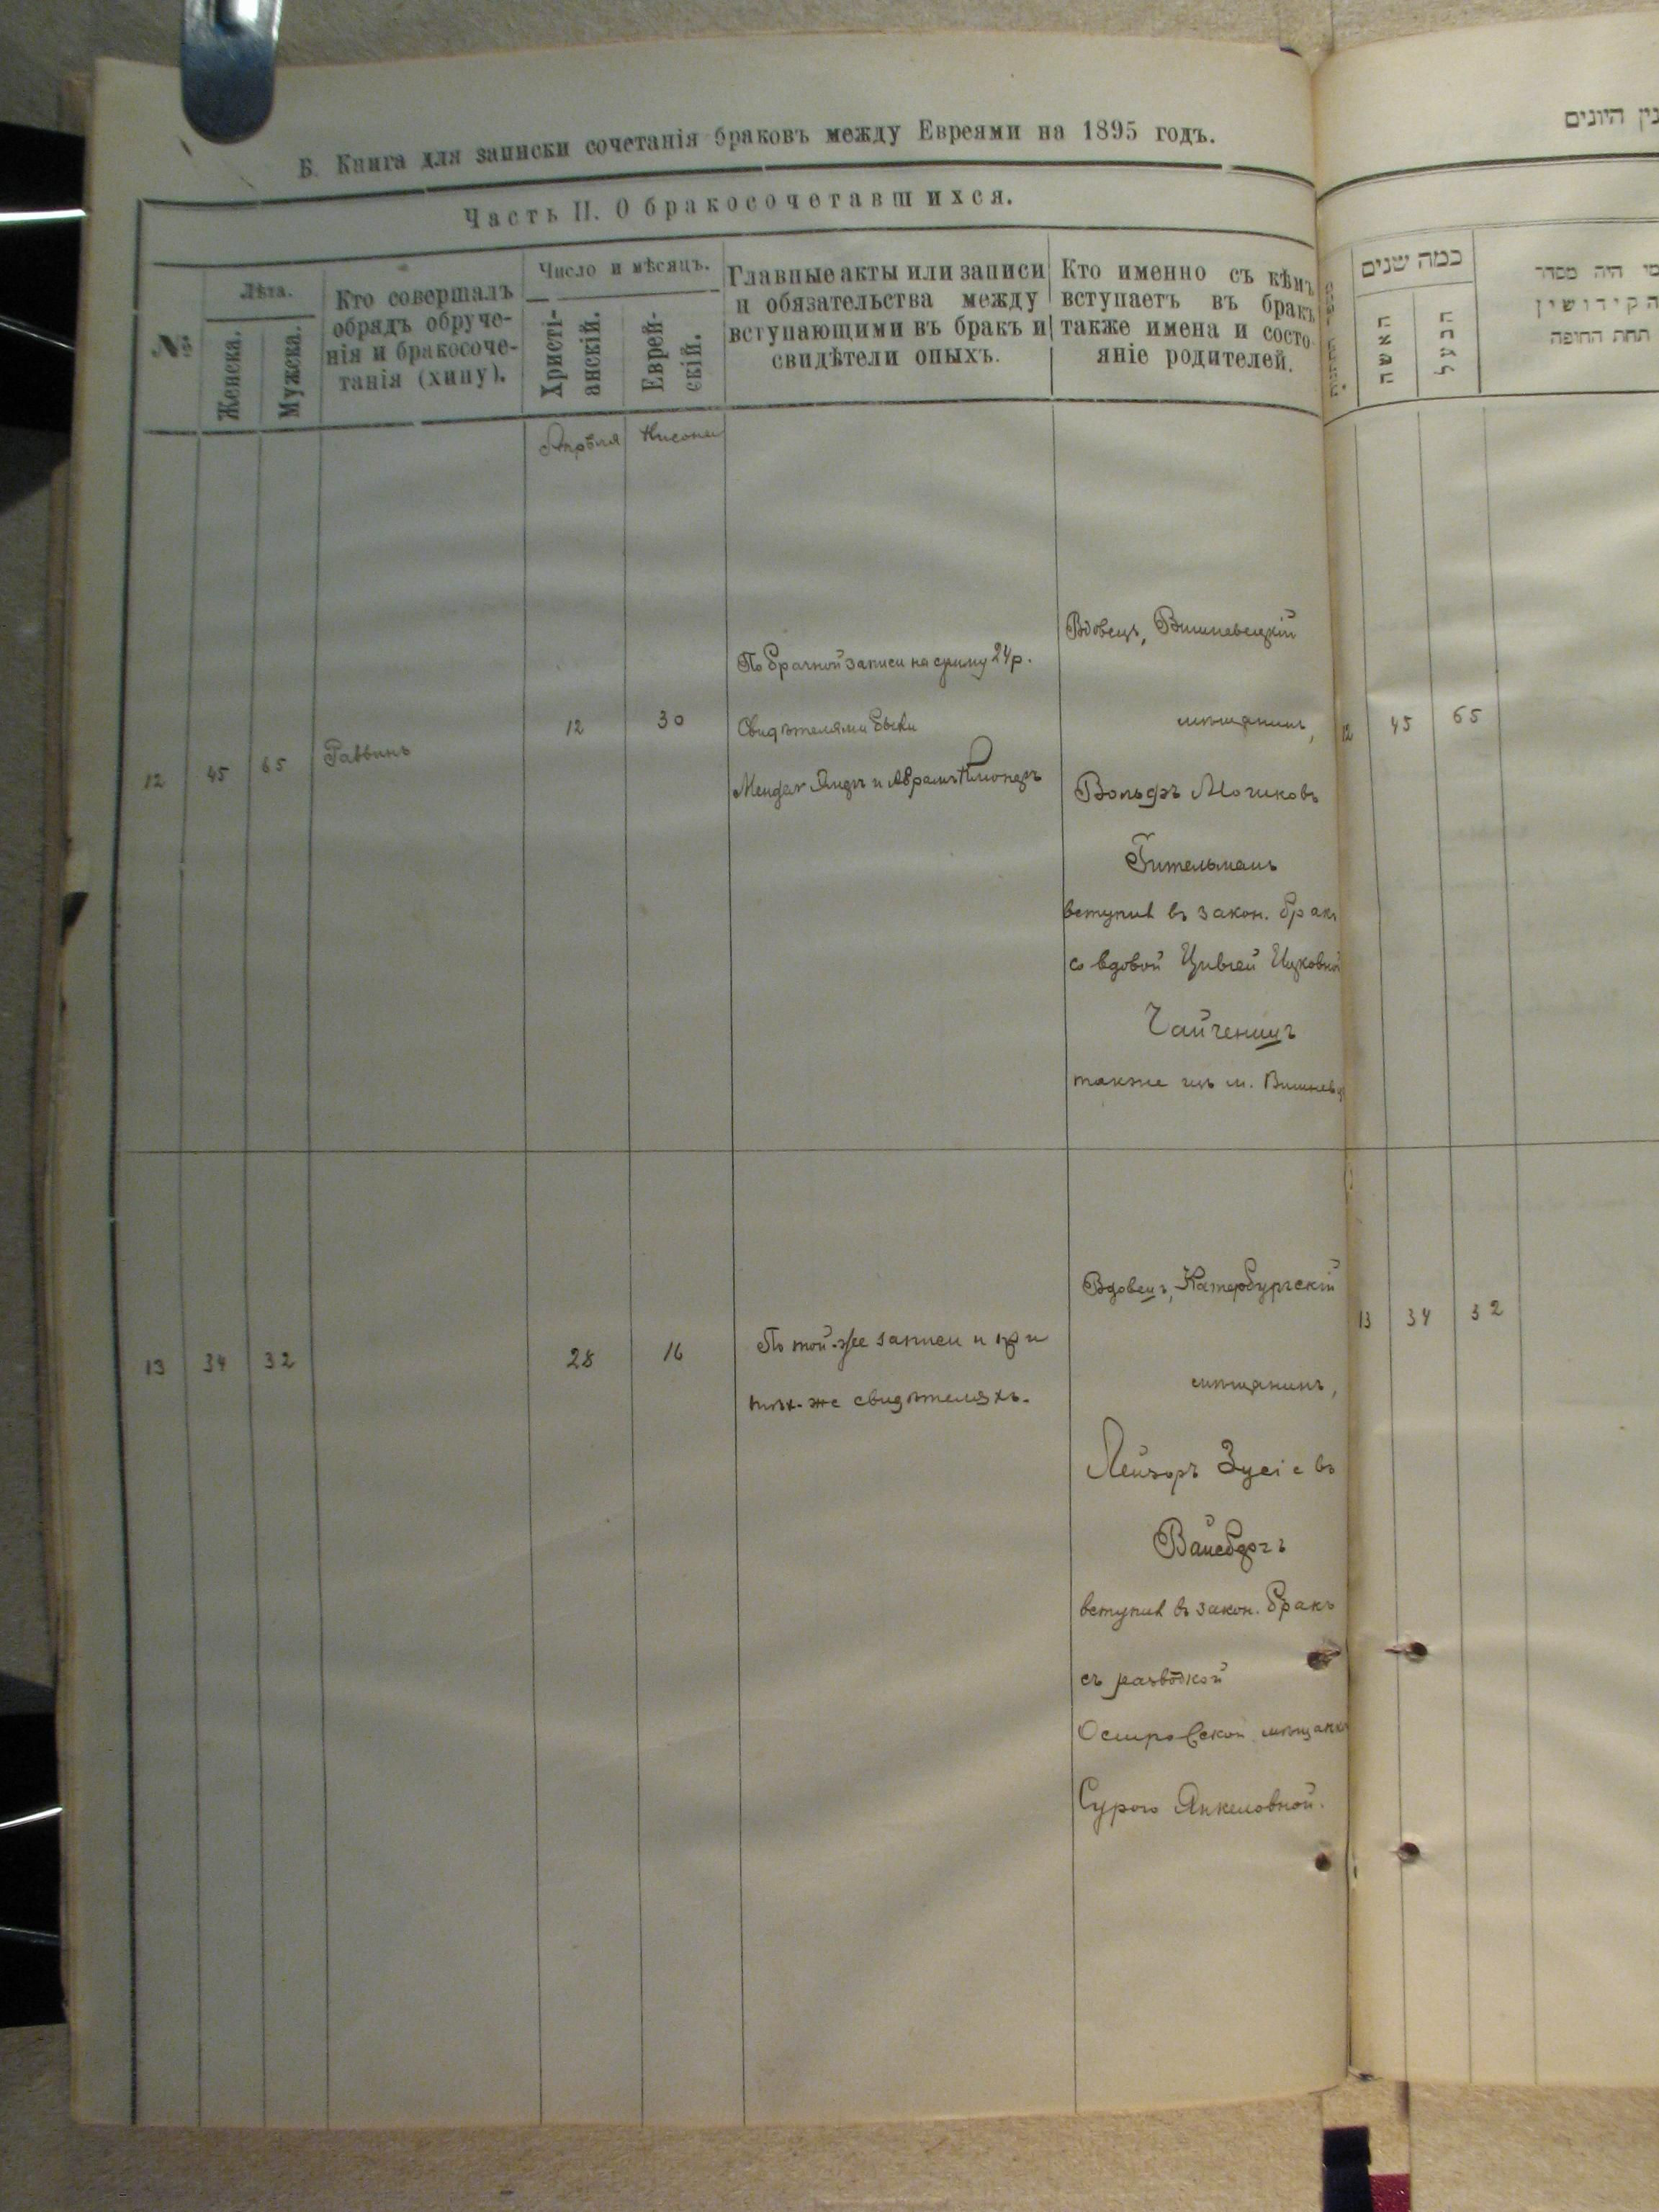 Б. Книга для записки сочетанія браковъ между Евреями на 1895 годъ.
Часть II. О бракосочетавшихся.
№
Лѣта.
Женска.
Мужеска.
Кто совершалъ
обрядъ обруче-
нія и бракосоче-
танія (хипу).
Число и мѣсяцъ.
Христі-
анскій.
Еврей-
скій.
Главные акты или записи
и обязательства между
вступающими въ бракъ и
свидѣтели оныхъ.
Кто именно съ кѣмъ
вступаетъ въ бракъ
также имена и состо-
яніе родителей.
Апрѣля
Нисона
12
45
65
Раввинъ
12
30
По брачной записи на сумму 24 р.
Свидѣтелями были
Мендель и Абрамъ
Вдовецъ, Вишневецкій
мѣщанинъ,
Вольфъ Мошковъ
Гительманъ
вступил въ закон. бракъ
со вдовой Цивіей Ицковной
Чайченицъ
также изъ м.
13
34
32
28
16
По той-же записи и при
тѣх-же свидѣтеляхъ.
Вдовецъ, Катербургскій
мѣщанинъ,
Лейзоръ Зусіевъ
вступил въ закон. бракъ
съ разводкой
Островской
Сурою Янкеловной.
ין היונים
כמה שנים
האשה
הבעל
מי היה מסדר
הקידושין
תחת החופה
12
45
65
13
34
32